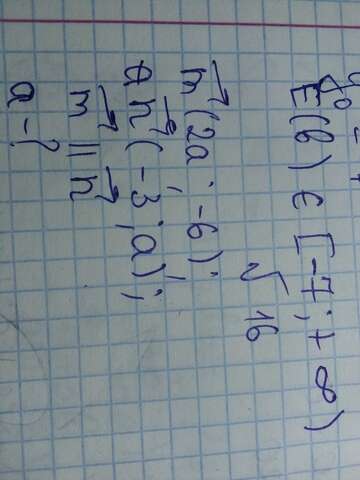 E(б) ∈ [-7; +∞)
√16
m⃗ (2a; -6);
n⃗ (-3; a);
m⃗ || n⃗
a - ?